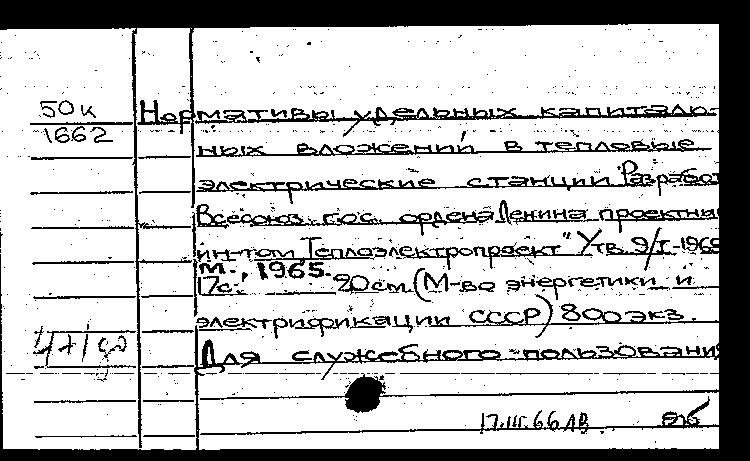 50к
1662
Нормативы удельных капиталь-
ных вложений в тепловые
электрические станции Разработ
Всесоюз. гос. ордена Ленина проектны
ин-том "Теплоэлектропроект" Утв. 9/I-196
М., 1965.
17с. 20см. (М-во энергетики и
электрификации СССР) 800 экз.
Для служебного пользовани
17.III.66 АВ.